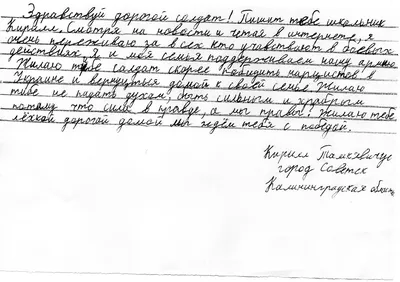 Здравствуй дорогой солдат! Пишит тебе школьник
Кирилл. Смотря на новости и читая в интернете, я
очень переживаю за всех кто учавствуют в боевых
действиях. Я и моя семья поддерживаем нашу армию
Жилаю тебе солдат скорее победить нарцистов в
Украине и вернуться домой к своей семье. Жилаю
тибе не падать духом, быть сильным и храбрым
потому что сила в правде, а мы правы! Жилаю тебе
лёхкой дорогой домой мы ждём тебя с победай.
Кирилл
город Советск
Калининградская область